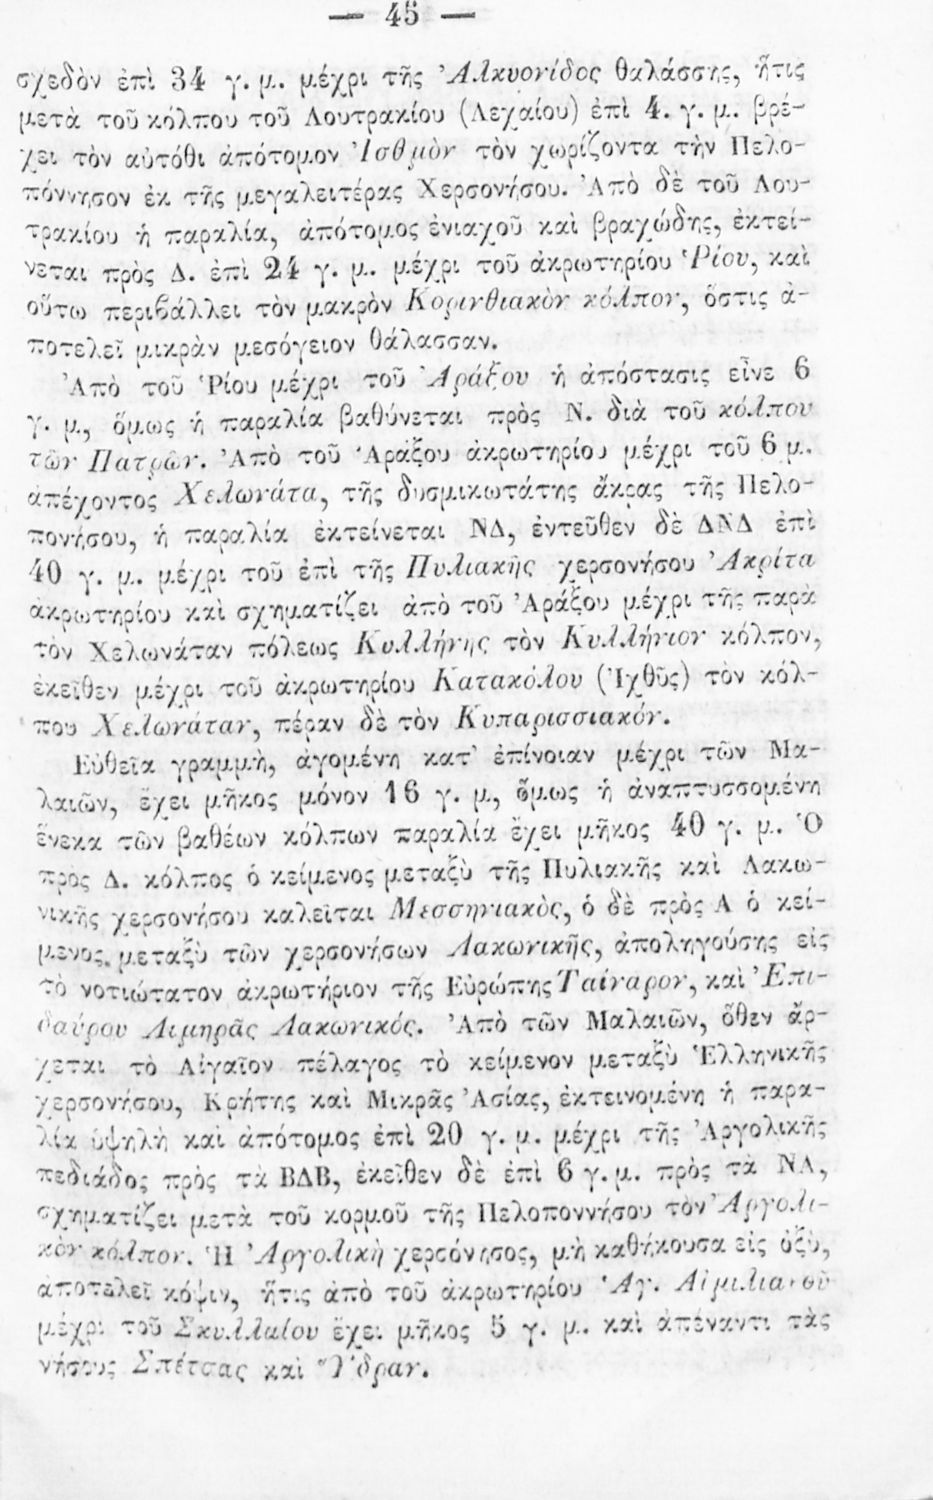 — 45 —
σχεδὸν ἐπὶ 34 γ. μ. μέχρι τῆς Ἀλκυονίδος θαλάσσης, ἥτις
μετὰ τοῦ κόλπου τοῦ Λουτρακίου (Λεχαίου) ἐπὶ 4. γ. μ. βρέ-
χει τὸν αὐτόθι ἀπότομον Ἰσθμὸν τὸν χωρίζοντα τὴν Πελο-
πόννησον ἐκ τῆς μεγαλειτέρας Χερσονήσου. Ἀπὸ δὲ τοῦ Λου-
τρακίου ἡ παραλία, ἀπότομος ἐνιαχοῦ καὶ βραχώδης, ἐκτεί-
νεται πρὸς Δ. ἐπὶ 24 γ. μ. μέχρι τοῦ ἀκρωτηρίου Ῥίου, καὶ
οὕτω περιβάλλει τὸν μακρὸν Κορινθιακὸν κόλπον, ὅστις ἀ-
ποτελεῖ μικρὰν μεσόγειον θάλασσαν.
Ἀπὸ τοῦ Ῥίου μέχρι τοῦ Ἀράξου ἡ ἀπόστασις εἶνε 6
γ. μ., ὅμως ἡ παραλία βαθύνεται πρὸς Ν. διὰ τοῦ κόλπου
τῶν Πατρῶν. Ἀπὸ τοῦ Ἀράξου ἀκρωτηρίου μέχρι τοῦ 6 μ.
ἀπέχοντος Χελωνάτα, τῆς δυσμικωτάτης ἄκρας τῆς Πελο-
πονήσου, ἡ παραλία ἐκτείνεται ΝΔ, ἐντεῦθεν δὲ ΔΝΔ ἐπὶ
40 γ. μ. μέχρι τοῦ ἐπὶ τῆς Πυλιακῆς χερσονήσου Ἀκρίτα
ἀκρωτηρίου καὶ σχηματίζει ἀπὸ τοῦ Ἀράξου μέχρι τῆς παρὰ
τὸν Χελωνάταν πόλεως Κυλλήνης τὸν Κυλλήνιον κόλπον,
ἐκεῖθεν μέχρι τοῦ ἀκρωτηρίου Κατακόλου (Ἰχθῦς) τὸν κόλ-
που Χελωνάταν, πέραν δὲ τὸν Κυπαρισσιακόν.
Εὐθεῖα γραμμὴ, ἀγομένη κατ' ἐπίνοιαν μέχρι τῶν Μα-
λαιῶν, ἔχει μῆκος μόνον 16 γ. μ., ὅμως ἡ ἀναπτυσσομένη
ἕνεκα τῶν βαθέων κόλπων παραλία ἔχει μῆκος 40 γ. μ. Ὁ
πρὸς Δ. κόλπος ὁ κείμενος μεταξὺ τῆς Πυλιακῆς καὶ Λακω-
νικῆς χερσονήσου καλεῖται Μεσσηνιακὸς, ὁ δὲ πρὸς Α ὁ κεί-
μενος μεταξὺ τῶν χερσονήσων Λακωνικῆς, ἀποληγούσης εἰς
τὸ νοτιώτατον ἀκρωτήριον τῆς Εὐρώπης Ταίναρον, καὶ Ἐπι-
δαύρου Λιμηρᾶς Λακωνικός. Ἀπὸ τῶν Μαλαιῶν, ὅθεν ἄρ-
χεται τὸ Αἰγαῖον πέλαγος τὸ κείμενον μεταξὺ Ἑλληνικῆς
χερσονήσου, Κρήτης καὶ Μικρᾶς Ἀσίας, ἐκτεινομένη ἡ παρα-
λία ὑψηλὴ καὶ ἀπότομος ἐπὶ 20 γ. μ. μέχρι τῆς Ἀργολικῆς
πεδιάδος πρὸς τὰ ΒΔΒ, ἐκεῖθεν δὲ ἐπὶ 6 γ. μ. πρὸς τὰ ΝΑ,
σχηματίζει μετὰ τοῦ κορμοῦ τῆς Πελοποννήσου τὸν Ἀργολι-
κὸν κόλπον. Ἡ Ἀργολικὴ χερσόνησος, μὴ καθήκουσα εἰς ὀξὺ,
ἀποτελεῖ κόψιν, ἥτις ἀπὸ τοῦ ἀκρωτηρίου Ἁγ. Αἰμιλιανοῦ
μέχρι τοῦ Σκυλλαίου ἔχει μῆκος 5 γ. μ. καὶ ἀπέναντι τὰς
νήσους Σπέτσας καὶ Ὕδραν.